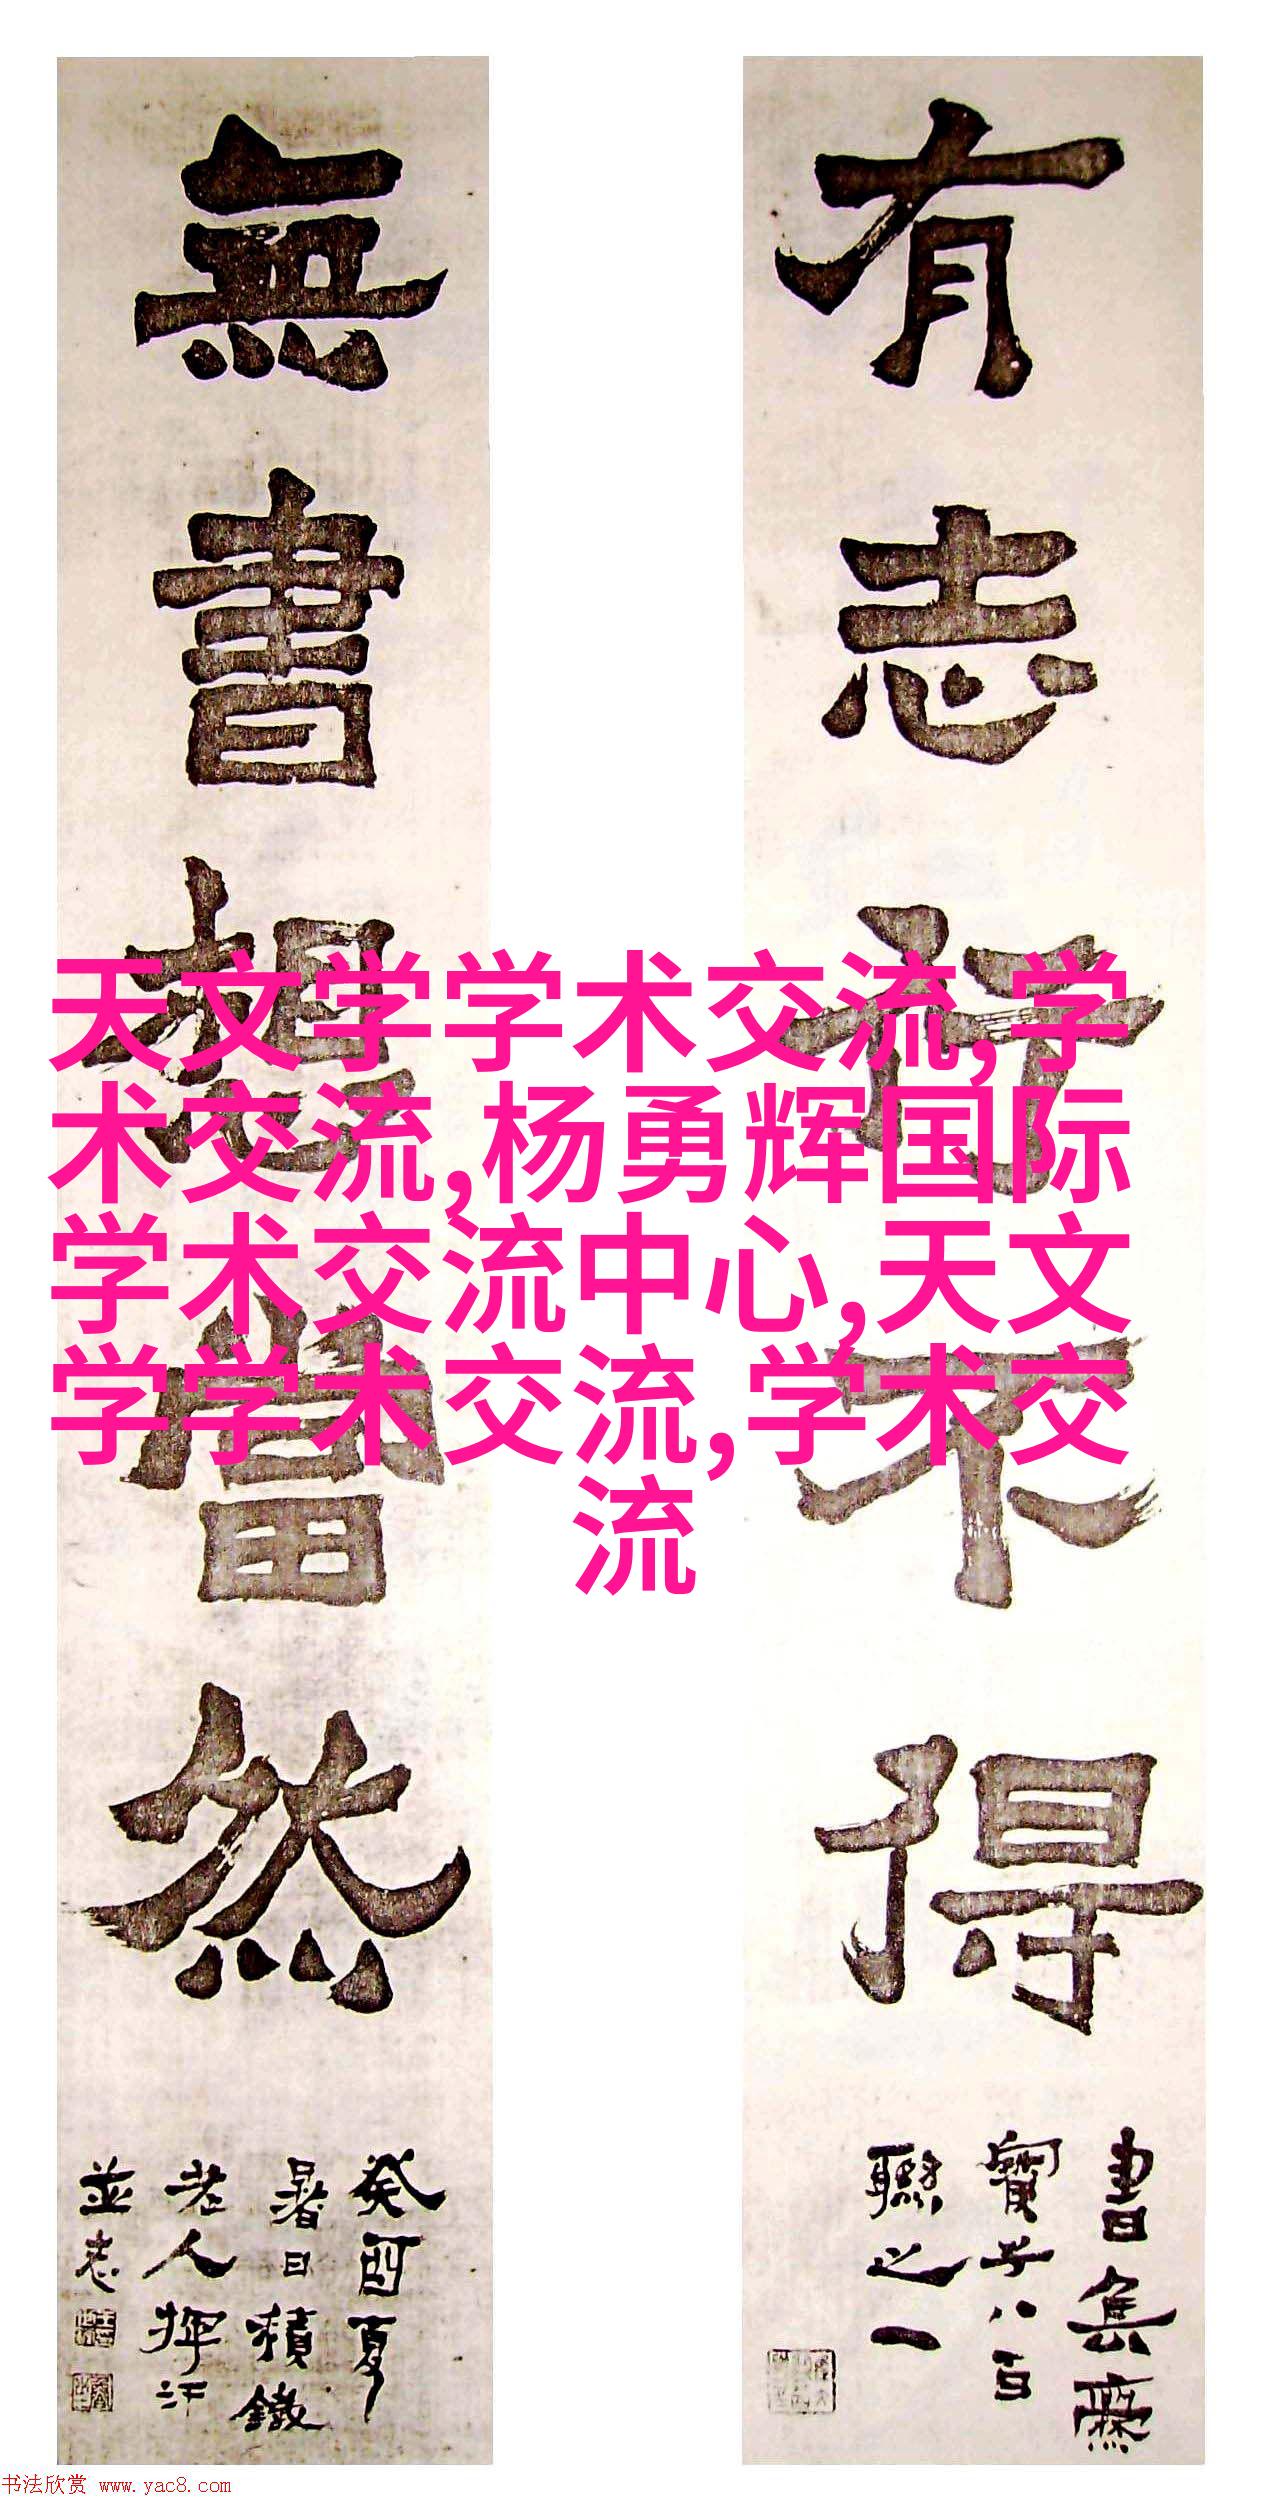 有志行不得
書集齋
寶子八百
聯之一
無書想當然
癸酉夏
暑日積鐵
老人揮汗
並志
天文学学术交流,学
术交流,杨勇辉国际
学术交流中心,天文
学学术交流,学术交
流
书法欣赏 www.yac8.com